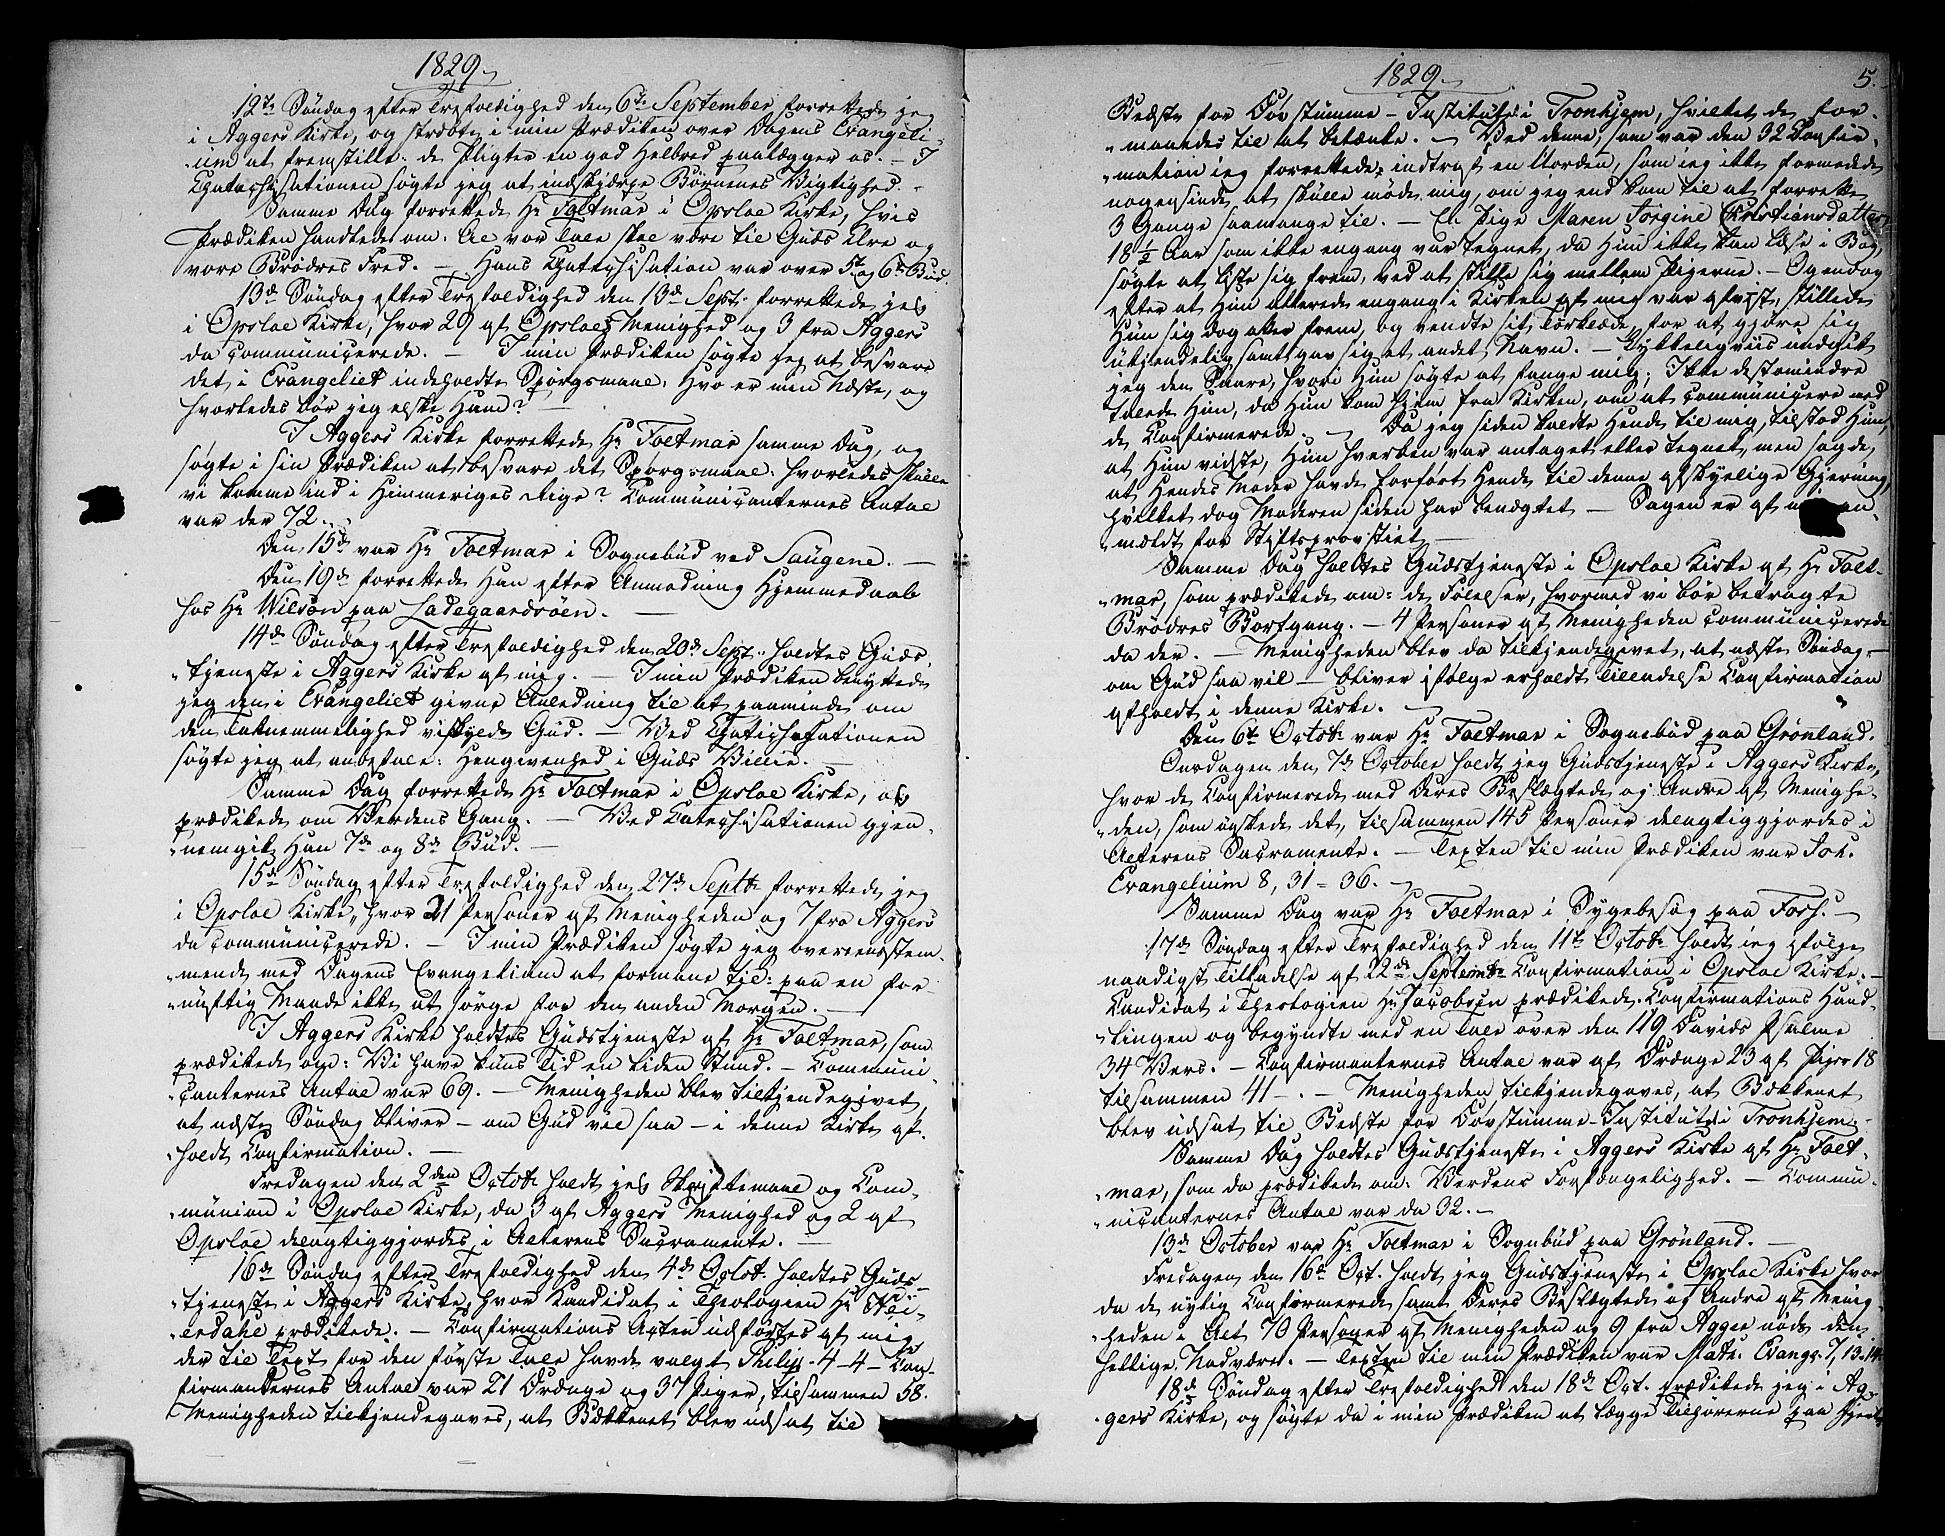 1829.
12te Søndag efter Trefoldighed den 6te September forrettede jeg
i Aggers Kirke, og stræbte i min Prædiken over Dagens Evangeli-
um at fremstille: de Pligter en god Helbred paalægger os. - I
Chatechisationen søgte jeg at indskjærpe Børnenes Vigtighed. -
Samme Dag forrettede Hr Foltmar i Opsloe Kirke, hvis
Prædiken handlede om: Al vor Tale skal være til Guds Ære og
vore Brødres Fred. - Hans Chatechisation var over 5te og 6te Bud.
13de Søndag efter Trefoldighed den 13de Sept. forrettede jeg
i Opsloe Kirke, hvor 29 af Opsloes Menighed og 3 fra Aggers
da communicerede. - I min Prædiken søgte jeg at besvare
det i Evangeliet indeholdte Spørgsmaal: Hvo er min Næste, og
hvorledes bør jeg elske Ham? -
I Aggers Kirke forrettede Hr Foltmar samme Dag, og
søgte i sin Prædiken at besvare det Spørgsmaal: hvorledes skulle
vi komme ind i Himmeriges Rige? Communicanternes Antal
var der 72. -
Den 15de var Hr Foltmar i Sognebud ved Saugene. -
Den 19de forrettede Han efter Anmodning Hjemmedaab
hos Hr Wilson paa Ladegaardsøen. -
14de Søndag efter Trefoldighed den 20de Sept. holdtes Guds-
tjeneste i Aggers Kirke af mig. - I min Prædiken benyttede
jeg den i Evangeliet givne Anledning til at paaminde om
den Taknemmelighed vi skylde Gud. - Ved Chatechisationen
søgte jeg at anbefale: Hengivenhed i Guds Villie. -
Samme Dag forrettede Hr Foltmar i Opsloe Kirke, og
prædikede om Verdens Gang. - Ved Catechisationen gjen-
nemgik Han 7de og 8de Bud. -
15de Søndag efter Trefoldighed den 27de Septbr forrettede jeg
i Opsloe Kirke, hvor 21 Personer af Menigheden og 7 fra Aggers
da communicerede. - I min Prædiken søgte jeg overeensstem-
mende med Dagens Evangelium at formane til: paa en for-
nuftig Maade ikke at sørge for den anden Morgen. -
I Aggers Kirke holdtes Gudstjeneste af Hr Foltmar, som
prædikede om: Vi have kuns Tid en liden Stund. - Communi-
canternes Antal var 69. - Menigheden blev tilkjendegivet,
at næste Søndag bliver - om Gud vil saa - i denne Kirke af-
holdt Confirmation. -
Fredagen den 2den Octobr holdt jeg Skriftemaal og Com-
munion i Opsloe Kirke, da 3 af Aggers Menighed og 2 af
Opsloe deelagtiggjordes i Alterens Sacramente. -
16de Søndag efter Trefoldighed den 4de Octob. holdtes Guds-
tjeneste i Aggers Kirke, hvor Kandidat i Theologien Hr
prædikede. - Confirmations Acten udførtes af mig,
der til Text for den første Tale havde valgt Philip. 4-4- Con-
firmandernes Antal var 21 Drenge og 37 Piger, tilsammen 58.
Menigheden tilkjendegaves, at Bækkenet blev udsat til
1829.
5.
Bedste for Døvstumme-Institutet i Tronhjem, hvilket de for-
manedes til at betænke. - Ved denne, som var den 32 Confir-
mation jeg forrettede, indtraf en Uorden, som jeg ikke formodede
nogensinde at skulle møde mig, om jeg end kom til at forrette
3 Gange saamange til. - En Pige Maren Jorgine Christiansdatter
18½ Aar som ikke engang var tegnet, da Hun ikke kan læse i Bog,
søgte at liste sig frem, ved at stille sig mellem Pigerne. - Og endog
efter at Hun allerede engang i Kirken af mig var afvist, stillede
Hun sig dog atter frem, og vendte sit Tørklæde, for at gjøre sig
ukjendelig samt gav sig et andet Navn. - Lykkeligviis undgik
jeg den Snare, hvori Hun søgte at fange mig; Ikke destomindre
talede Hun, da Hun kom hjem fra Kirken, om at communicere med
de Confirmerede. - Da jeg siden kaldte Hende til mig, tilstod Hun,
at Hun vidste, Hun hverken var antaget eller tegnet, men sagde,
at Hendes Moder havde forført Hende til denne afskyelige Gjerning,
hvilket dog Moderen siden har benægtet - Sagen er af an-
mældt for Stiftsprovstiet -
Samme Dag holdtes Gudstjeneste i Opsloe Kirke af Hr Folt-
mar, som prædikede om: de Følelser, hvormed vi bør betragte
Brødres Bortgang. - 4 Personer af Menigheden communicerede
da der. - Menigheden blev da tilkjendegivet, at næste Søndag -
om Gud saa vil - bliver ifølge erholdt Tilladelse Confirmation
afholdt i denne Kirke. -
Den 6te Octobr var Hr Foltmar i Sognebud paa Grønland.
Onsdagen den 7de October holdt jeg Gudstjeneste i Aggers Kirke,
hvor de Confirmerede med Deres Beslægtede og Andre af Menighe-
den, som ønskede det, tilsammen 145 Personer deelagtiggjordes i
Alterens Sacramente. - Texten til min Prædiken var Joh.
Evangelium 8, 31-36. -
Samme Dag var Hr Foltmar i Sygebesøg paa Foss. -
17de Søndag efter Trefoldighed den 11te Octobr holdt jeg ifølge
naadigst Tilladelse af 22de Septembr Confirmation i Opsloe Kirke. -
Candidat i Theologien Hr Jacobsen prædikede. Confirmations Hand-
lingen og begyndte med en Tale over den 119 Davids Psalme
34 Vers. - Confirmanternes Antal var af Drenge 23 af Piger 18
tilsammen 41 - . - Menigheden tilkjendegaves, at Bækkenet
blev udsat til Bedste for Døvstumme-Institutet i Tronhjem. -
Samme Dag holdtes Gudstjeneste i Aggers Kirke af Hr Folt-
mar, som da prædikede om: Verdens Forfængelighed. - Commu-
nicanternes Antal var da 32. -
13de October var Hr Foltmar i Sognebud paa Grønland. -
Fredagen den 16de Oct. holdt jeg Gudstjeneste i Opsloe Kirke hvor
da de nylig Confirmerede samt Deres Beslægtede og Andre af Menig-
heden i Alt 70 Personer af Menigheden og 9 fra Agger nøde den
hellige Nadvære. - Texten til min Prædiken var Math. Evang. 7, 13-14.
18de Søndag efter Trefoldighed den 18de Oct. prædikede jeg i Ag-
gers Kirke, og søgte da i min Prædiken at lægge Tilhørerne paa Hjerte